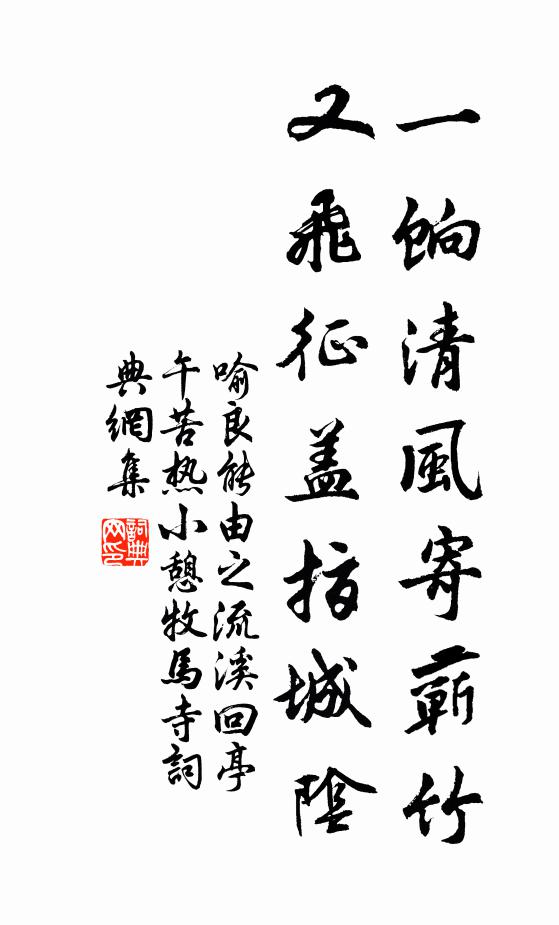 一餉清風寄蘄竹
又飛征蓋指城陰
喻良能由之流溪回亭
午苦热小憩牧馬寺詞
典網集
詞典网印